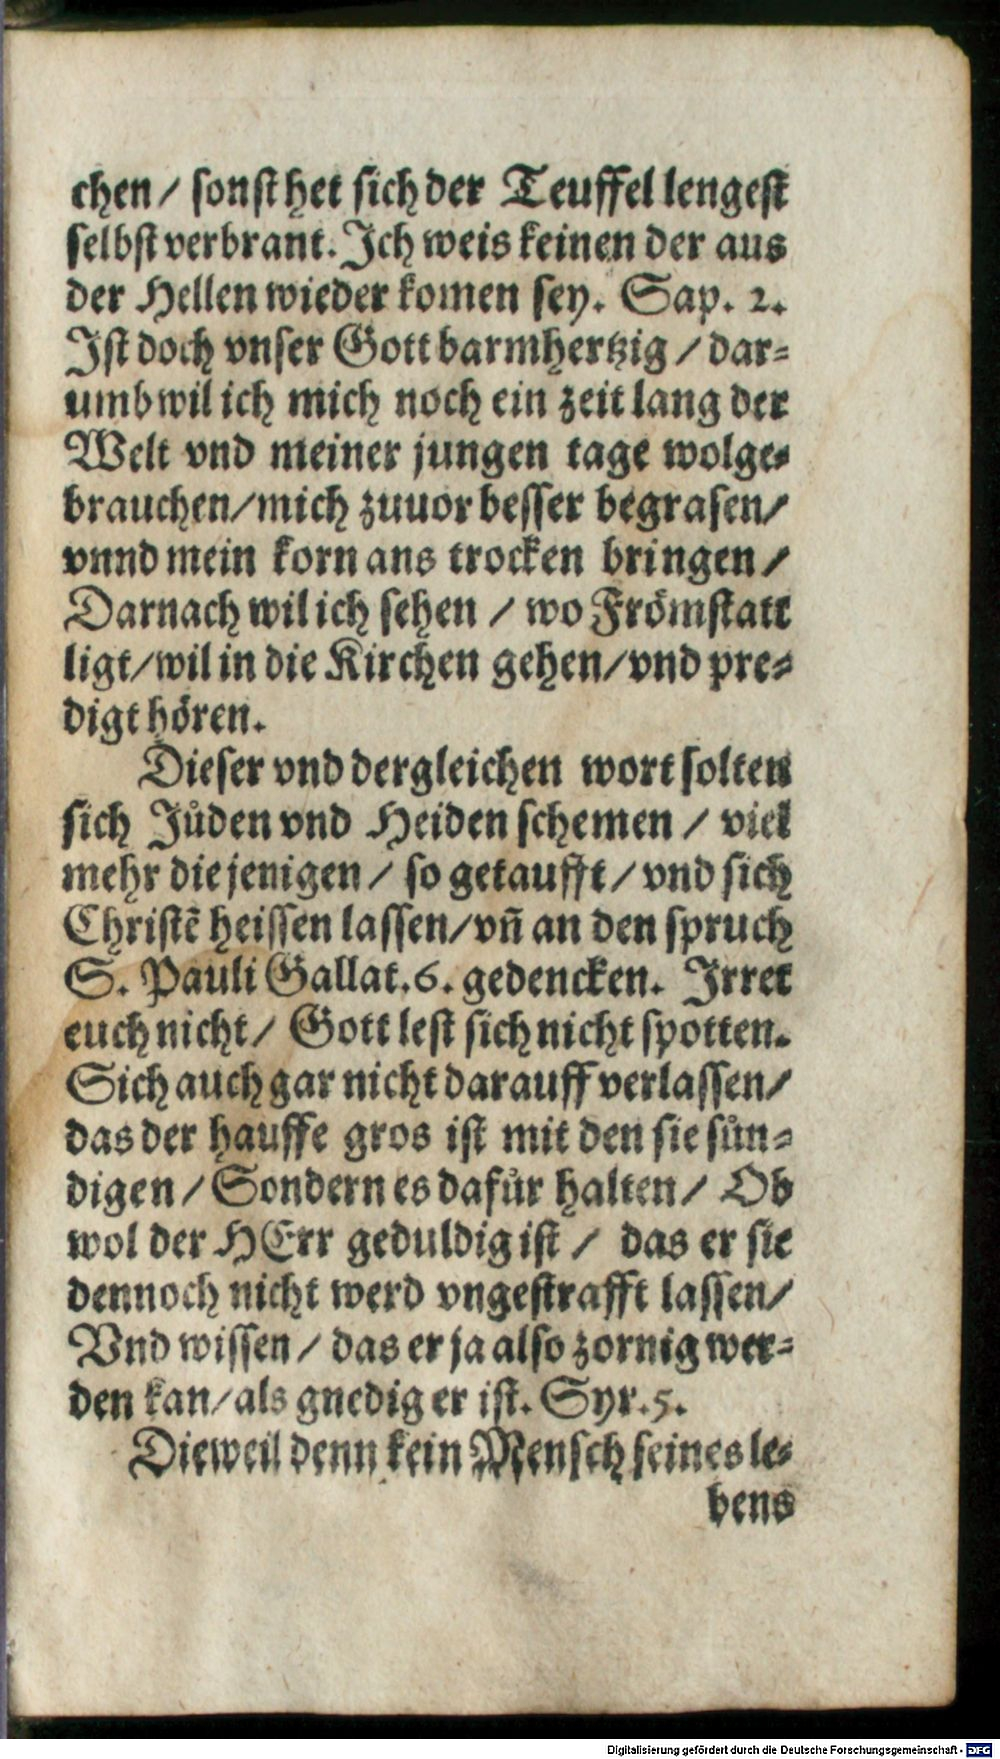 chen / sonst het sich der Teuffel lengest
selbst verbrant. Ich weis keinen der aus
der Hellen wieder komen sey. Sap. 2.
Ist doch vnser Gott barmhertzig / dar-
umb wil ich mich noch ein zeit lang der
Welt vnd meiner jungen tage wolge-
brauchen / mich zuuor besser begrasen /
vnnd mein korn ans trocken bringen /
Darnach wil ich sehen / wo Frömstatt
ligt / wil in die Kirchen gehen / vnd pre-
digt hören.
Dieser vnd dergleichen wort solten
sich Jůden vnd Heiden schemen / viel
mehr die jenigen / so getaufft / vnd sich
Christẽ heissen lassen / vñ an den spruch
S. Pauli Gallat. 6. gedencken. Irret
euch nicht / Gott lest sich nicht spotten.
Sich auch gar nicht darauff verlassen /
das der hauffe gros ist mit den sie sůn-
digen / Sondern es dafůr halten / Ob
wol der HErr geduldig ist / das er sie
dennoch nicht werd vngestrafft lassen /
Vnd wissen / das er ja also zornig wer-
den kan / als gnedig er ist. Syr. 5.
Dieweil denn kein Mensch seines le-
bens
Digitalisierung gefördert durch die Deutsche Forschungsgemeinschaft - DFG